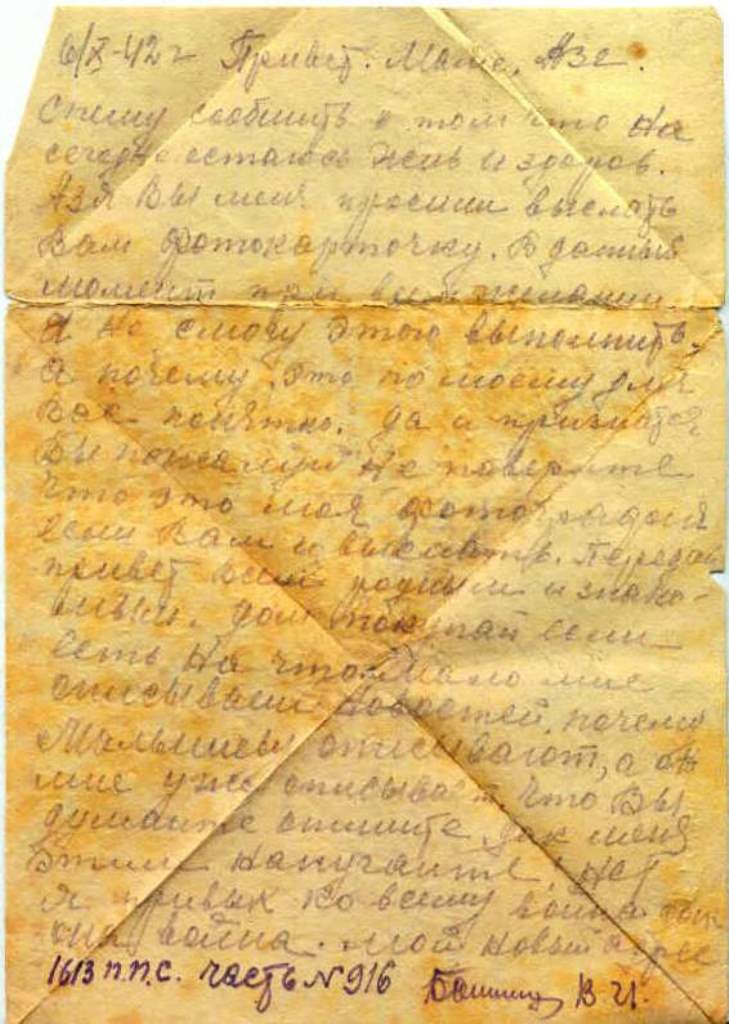 6/X-42 г Привет. Маме, Азе.
Спешу сообщить о том что На
сегодне остаюсь жив и здоров.
Азя Вы меня просили выслать
Вам фотокарточку. В данный
момент при всём желании
Я Не смогу этого выполнить.
А почему, это по моему для
Вас понятно. да и признатся
Вы пожалуй Не поверите
Что это моя фотография
если Вам и выслать. Передай
привет всем родным и знако-
мым. дом покупай если
есть На что. Мало мне
описываеш Новостей, почему
Малышевы описывают, а он
мне уже описывает, что Вы
думаите опишите, как меня
этим Напугаите, Нет
Я привык ко всему война
война. Мой Новый адрес
1613 п.п.с. часть № 916 В. И.